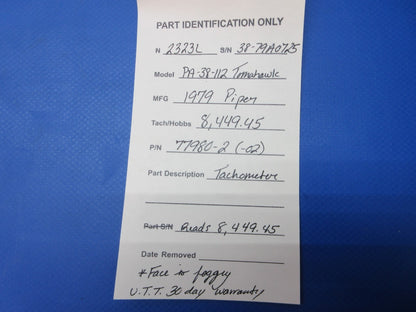 PART IDENTIFICATION ONLY
N 2323L S/N 38-79A0725
Model PA-38-112 Tomahawk
MFG 1979 Piper
Tach/Hobbs 8,449.45
P/N 77980-2 (-02)
Part Description Tachometer
Part S/N Reads 8,449.45
Date Removed
*Face is foggy
U.T.T. 30 day warranty